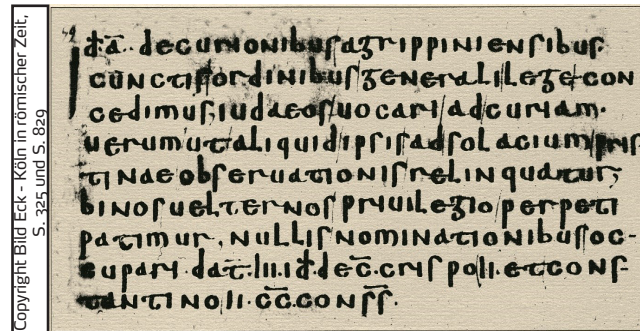 Copyright Bild Eck - Köln in römischer Zeit,
S. 325 und S. 829
Id̄ā. decurionibus agrippiniensibus.
cūnctis ordinibus generali lege con
cedimus, iudaeos uocari ad curiam.
uerum ut aliquid ipsis ad solacium pris
tinae obseruationis relinquatur,
binos uel ternos priuilegio perpeti
patimur, nullis nominationibus oc-
cupari. dat̄. III. id̄. dec̄. cris poII. et cons-
tantino II. c̄c̄. cons̄s̄.